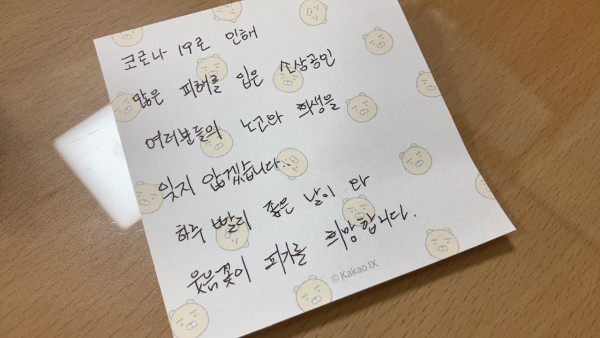 코로나 19로 인해
많은 피해를 입은 소상공인
여러분들의 노고와 희생을
잊지 않겠습니다..
하루 빨리 좋은 날이 와
웃음꽃이 피기를 희망합니다.
© Kakao IX